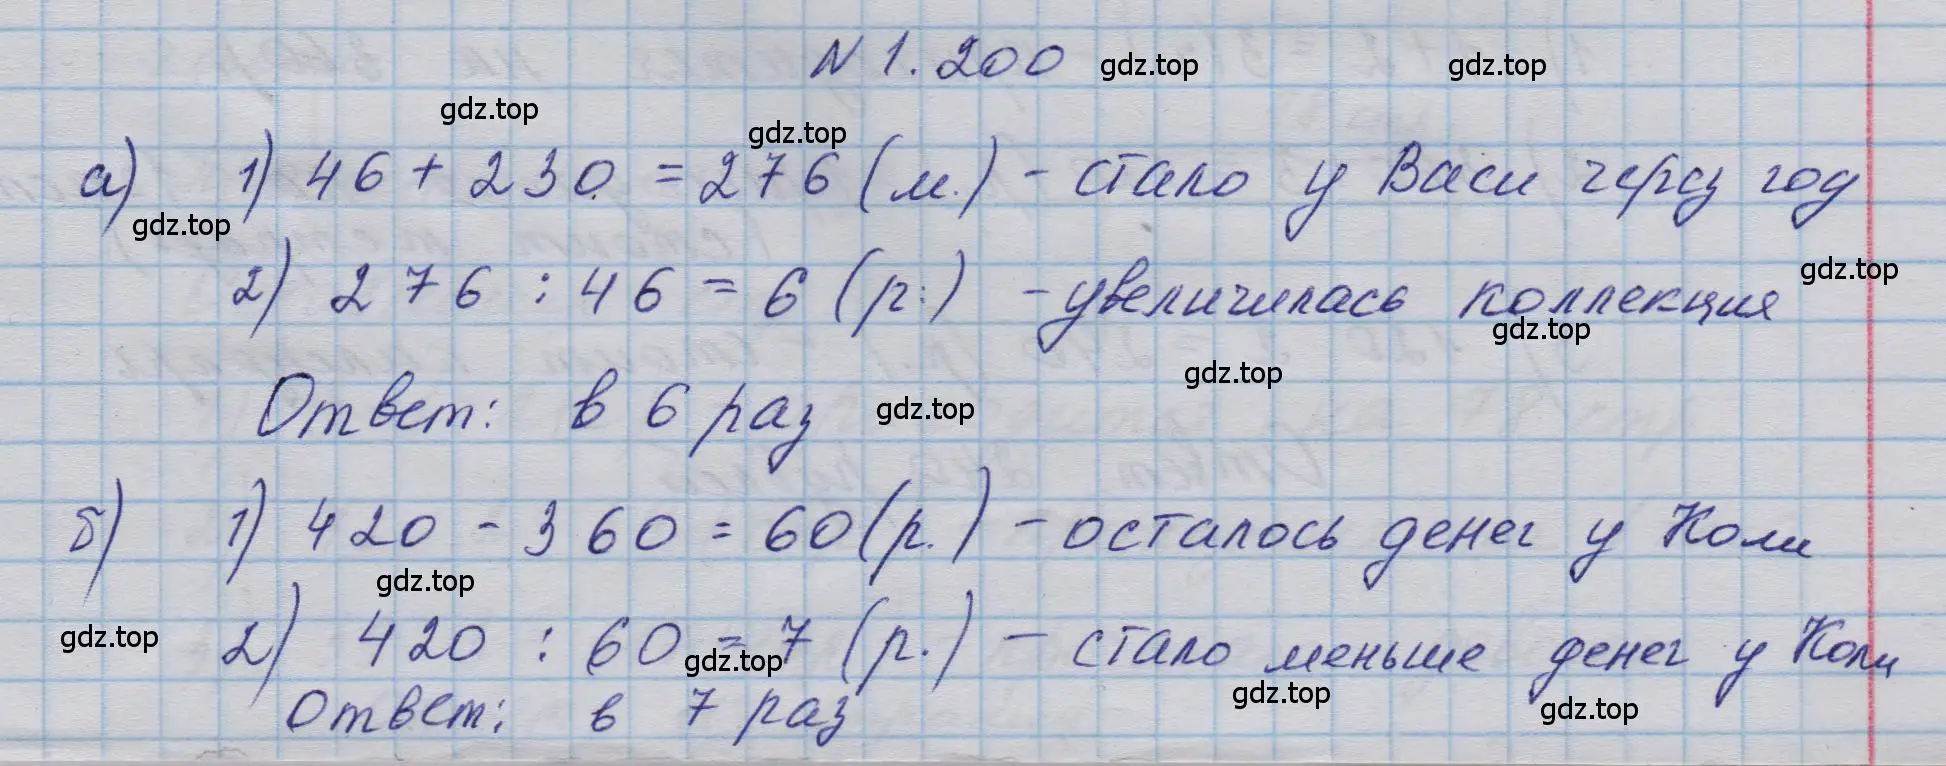 N 1.200
а) 1) 46 + 230 = 276 (м.) - стало у Васи через год
2) 276 : 46 = 6 (р.) - увеличилась коллекция
Ответ: в 6 раз
б) 1) 420 - 360 = 60 (р.) - осталось денег у Коли
2) 420 : 60 = 7 (р.) - стало меньше денег у Коли
Ответ: в 7 раз
gdz.top
gdz.top
gdz.top
gdz.top
gdz.top
gdz.top
gdz.top
gdz.top
gdz.top
gdz.top
gdz.top
gdz.top
gdz.top
gdz.top